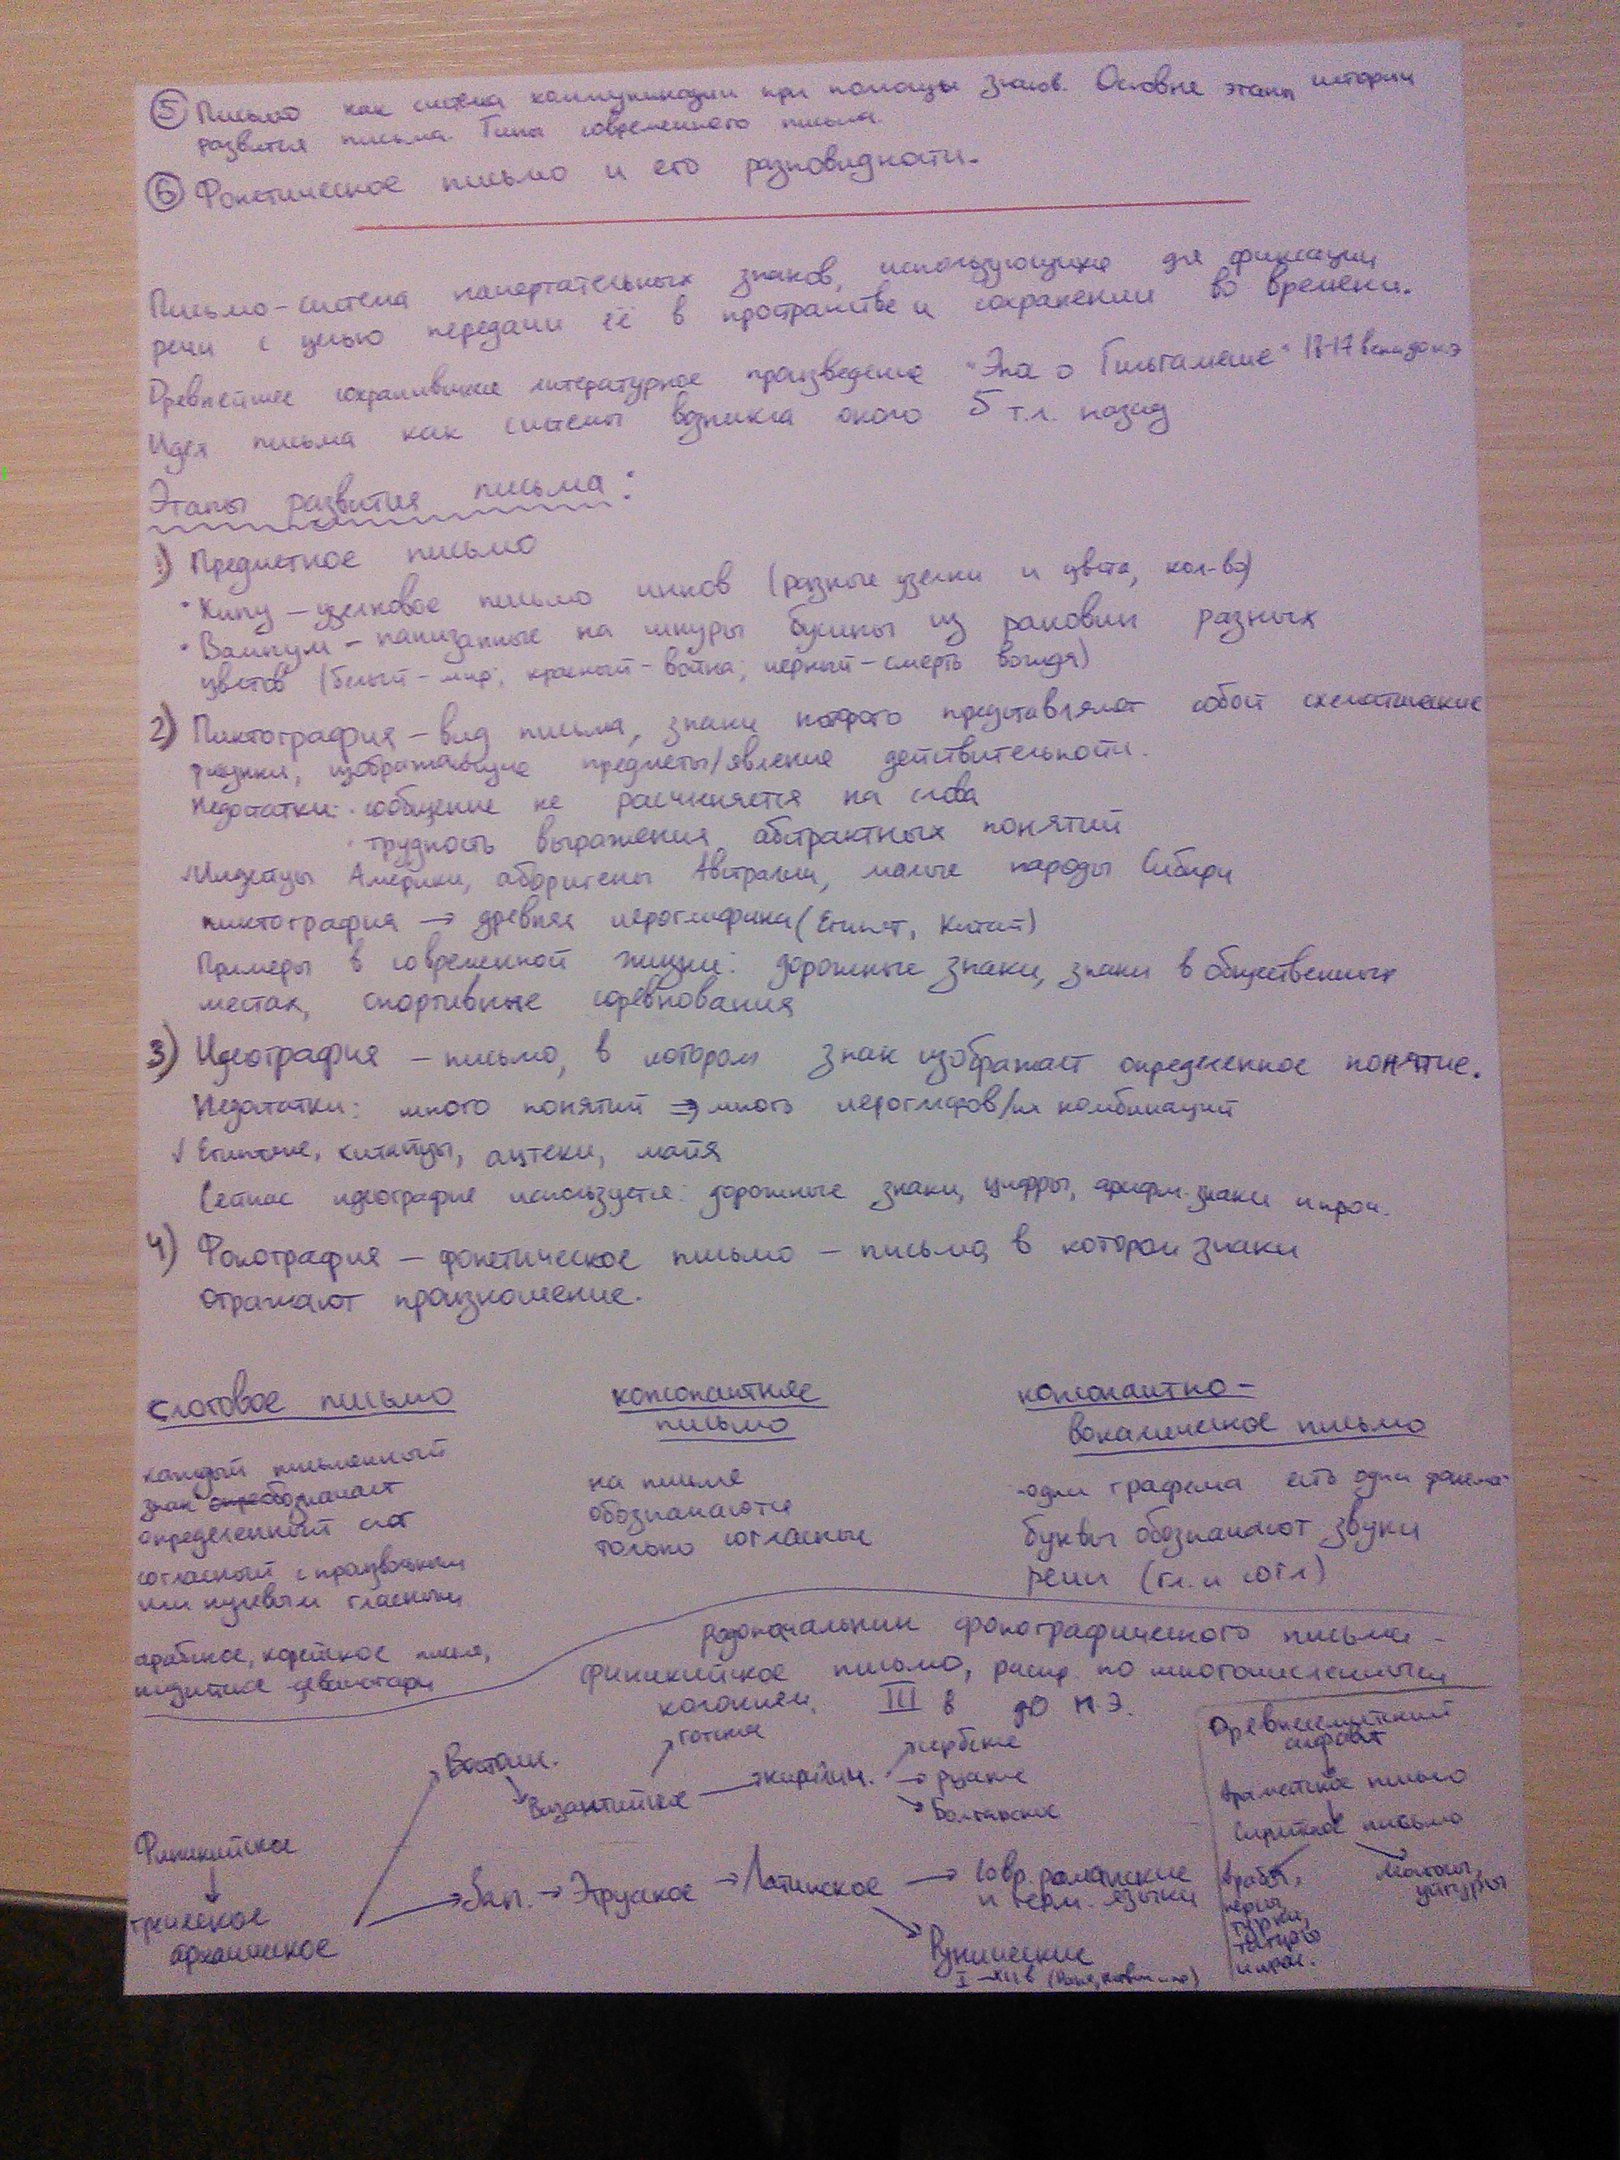 ⑤ Письмо как система коммуникации при помощи знаков. Основне этапы истории
развития письма. Типы современного письма.
⑥ Фонетическое письмо и его разновидности.
Письмо - система начертательных знаков, использующихся для фиксации
речи с целью передачи её в пространстве и сохранении во времени.
Древнейшее сохранившееся литературное произведение "Эпос о Гильгамеше" 18-17 веки до н.э
Идея письма как системы возникла около 5 т.л. назад
Этапы развития письма:
1) Предметное письмо
• Кипу - узелковое письмо инков (разные узелки и цвета, кол-во)
• Вампум - нанизанные на шнуры бусины из раковин разных
цветов (белый - мир; красный - война; черный - смерть вождя)
2) Пиктография - вид письма, знаки которого представляют собой схематические
рисунки, изображающие предметы/явление действительности.
Недостатки: · сообщение не расчленяется на слова
· трудность выражения абстрактных понятий
Индейцы Америки, аборигены Австралии, малые народы Сибири
пиктография → древняя иероглифика (Египет, Китай)
Примеры в современной жизни: дорожные знаки, знаки в общественных
местах, спортивные соревнования
3) Идеография - письмо, в котором знак изображает определенное понятие.
Недостатки: много понятий ⇒ много иероглифов/их комбинаций
√ Египтяне, китайцы, ацтеки, майя
Сейчас идеография используется: дорожные знаки, цифры, арифм. знаки и проч.
4) Фонография - фонетическое письмо - письмо, в котором знаки
отражают произношение.
слоговое письмо
каждый письменный
знак обозначает
определенный слог
согласный с произвольным
или нулевым гласным
арабское, корейское письмо,
индийское деванагари
консонантное
письмо
на письме
обозначаются
только согласные
консонантно-
вокалическое письмо
одна графема есть одна фонема
буквы обозначают звуки
речи (гл. и согл)
родоначальник фонографического письма -
финикийское письмо, распр. по многочисленным
колониям, III в до н.э.
Финикийское
↓
греческое
архаическое
Восточн.
Византийское
готское
→ кирилич.
сербские
→ русские
болгарские
→ Зап. → Этруское → Латинское → совр. романские
и герм. языки
Рунические
I - XII в
Древнесемитский
алфавит
Арамейское письмо
Сирийское письмо
Арабы,
персы,
тюрки,
татары
и проч.
Монголы,
уйгуры